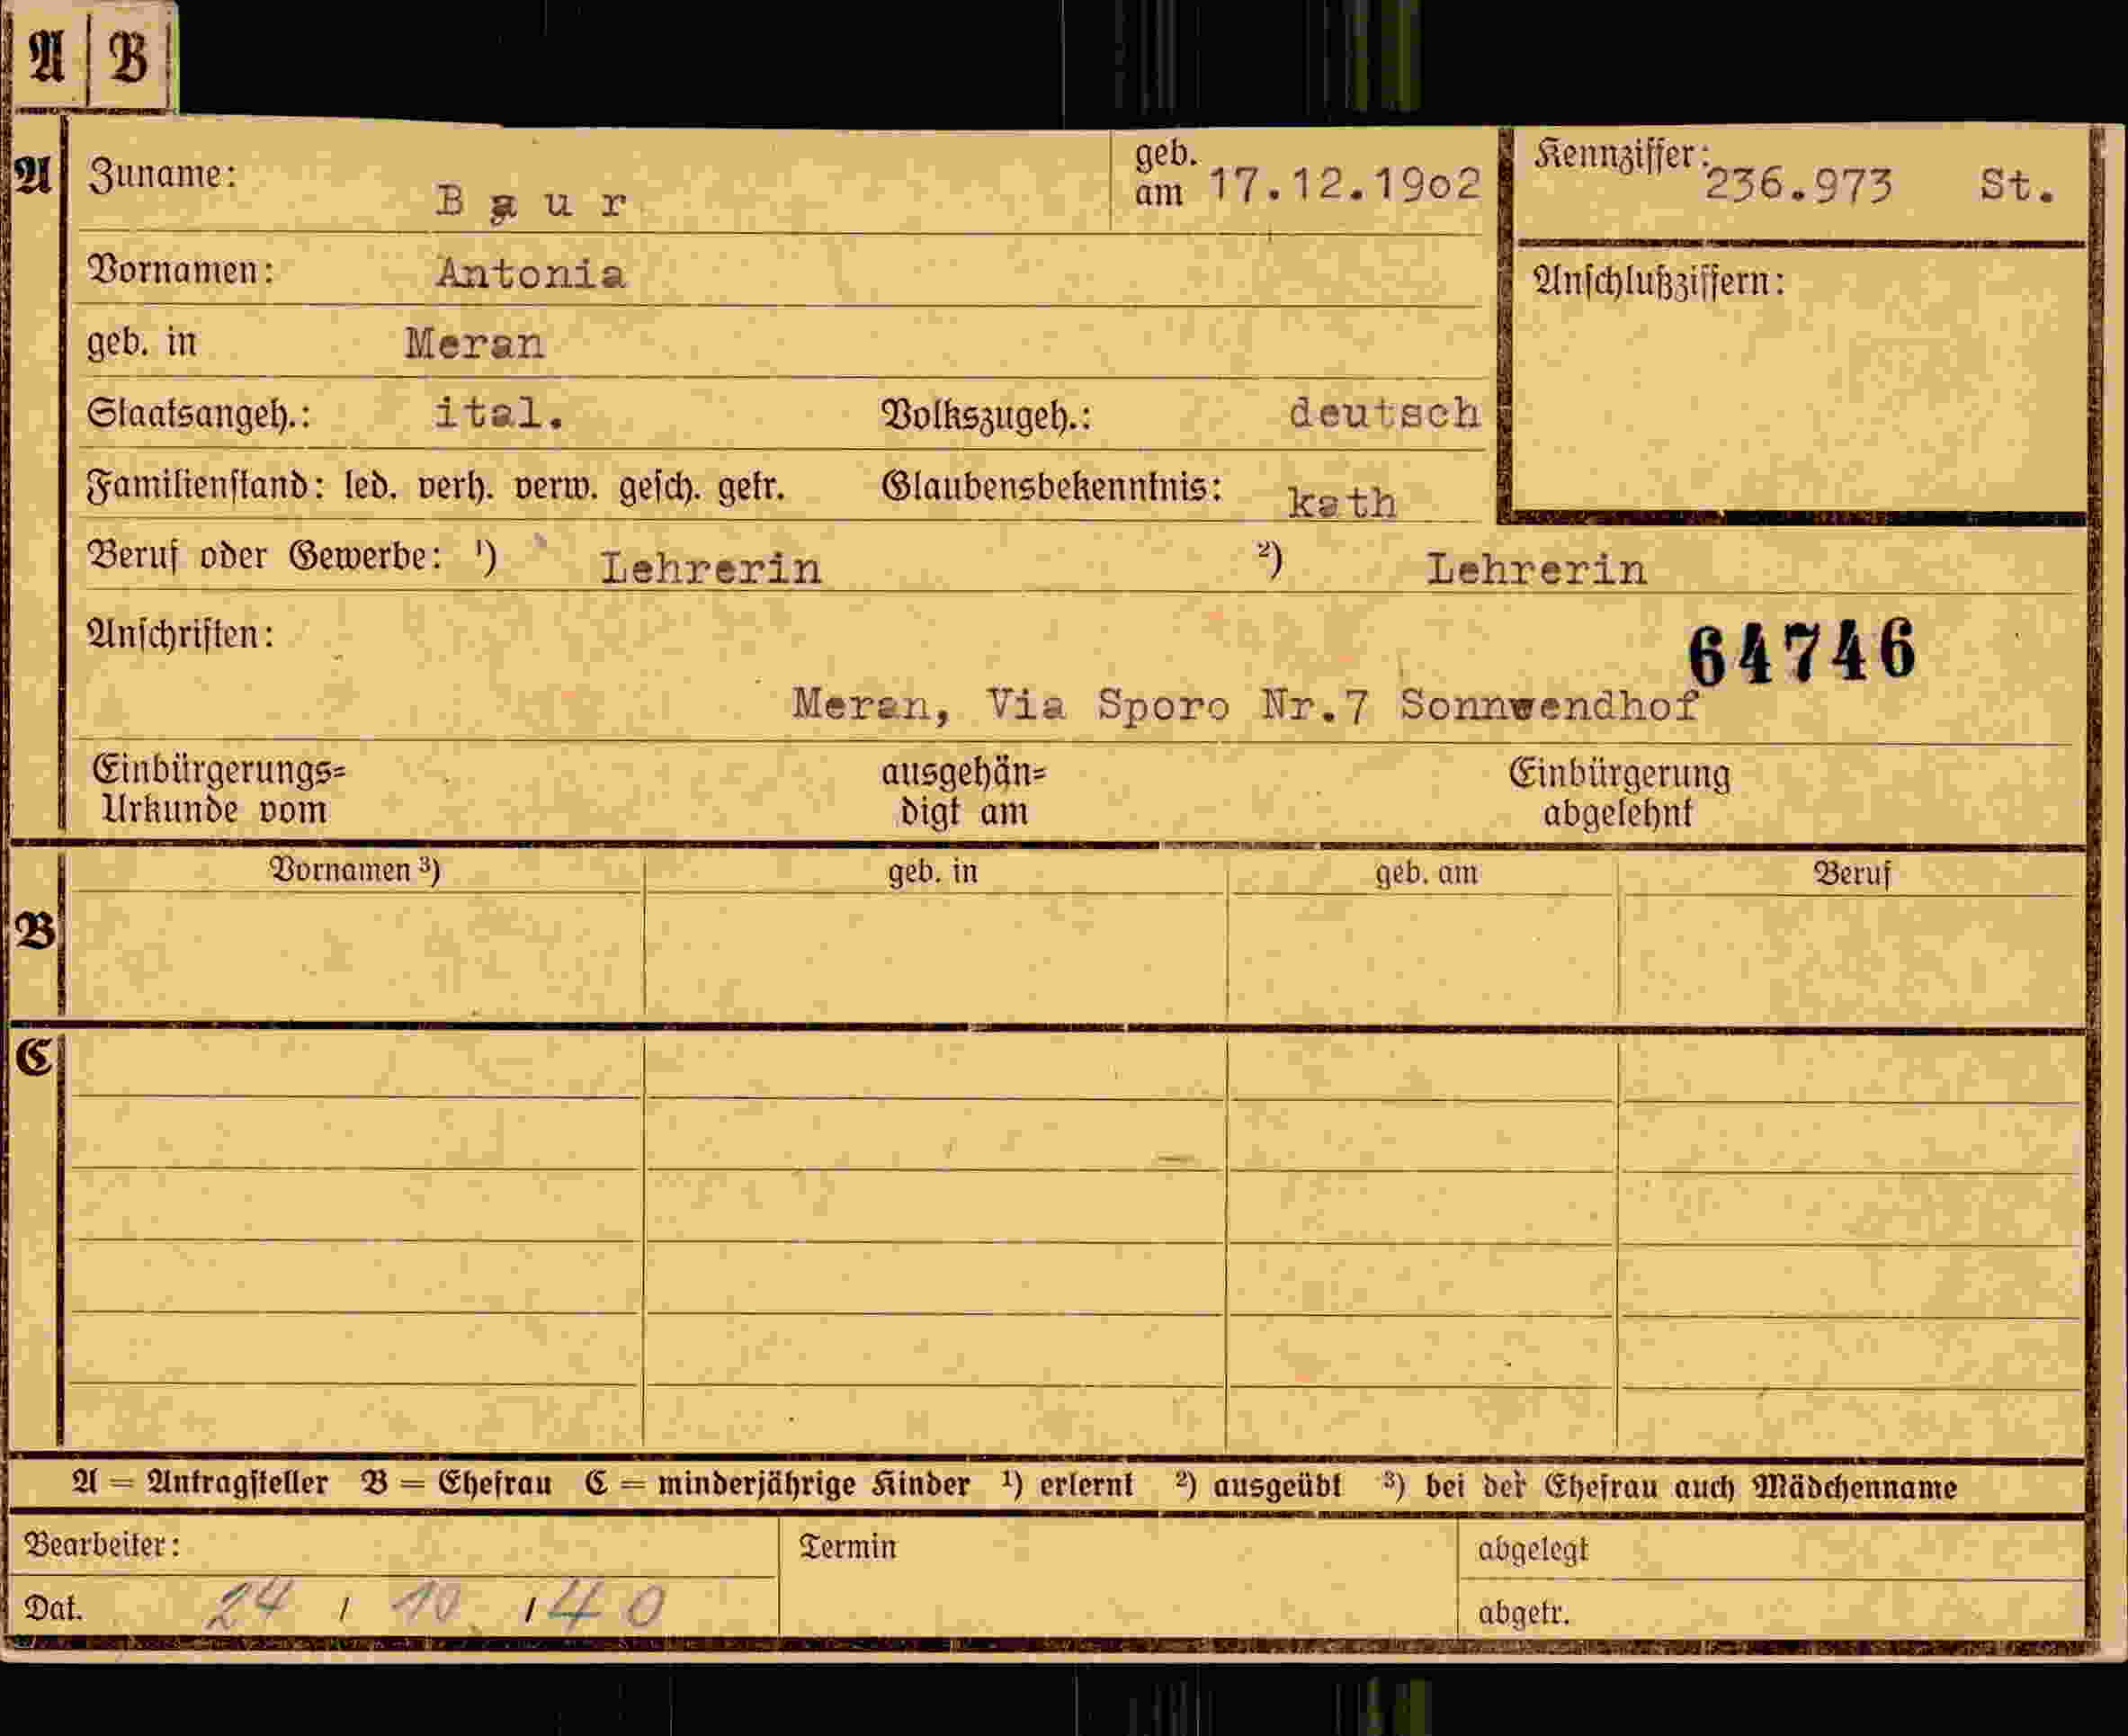 A B
A Zuname: Baur geb. am 17.12.19o2 Kennziffer: 236.973 St.
Vornamen: Antonia Anschlußziffern:
geb. in Meran
Staatsangeh.: ital. Volkszugeh.: deutsch
Familienstand: led. verh. verw. gesch. getr. Glaubensbekenntnis: kath
Beruf oder Gewerbe: ¹) Lehrerin ²) Lehrerin
Anschriften: 64746
Meran, Via Sporo Nr.7 Sonnwendhof
Einbürgerungs= ausgehän= Einbürgerung
Urkunde vom digt am abgelehnt
Vornamen ³) geb. in geb. am Beruf
B
C
A = Antragsteller B = Ehefrau C = minderjährige Kinder ¹) erlernt ²) ausgeübt ³) bei der Ehefrau auch Mädchenname
Bearbeiter: Termin abgelegt
Dat. 24 / 10 / 40 abgetr.